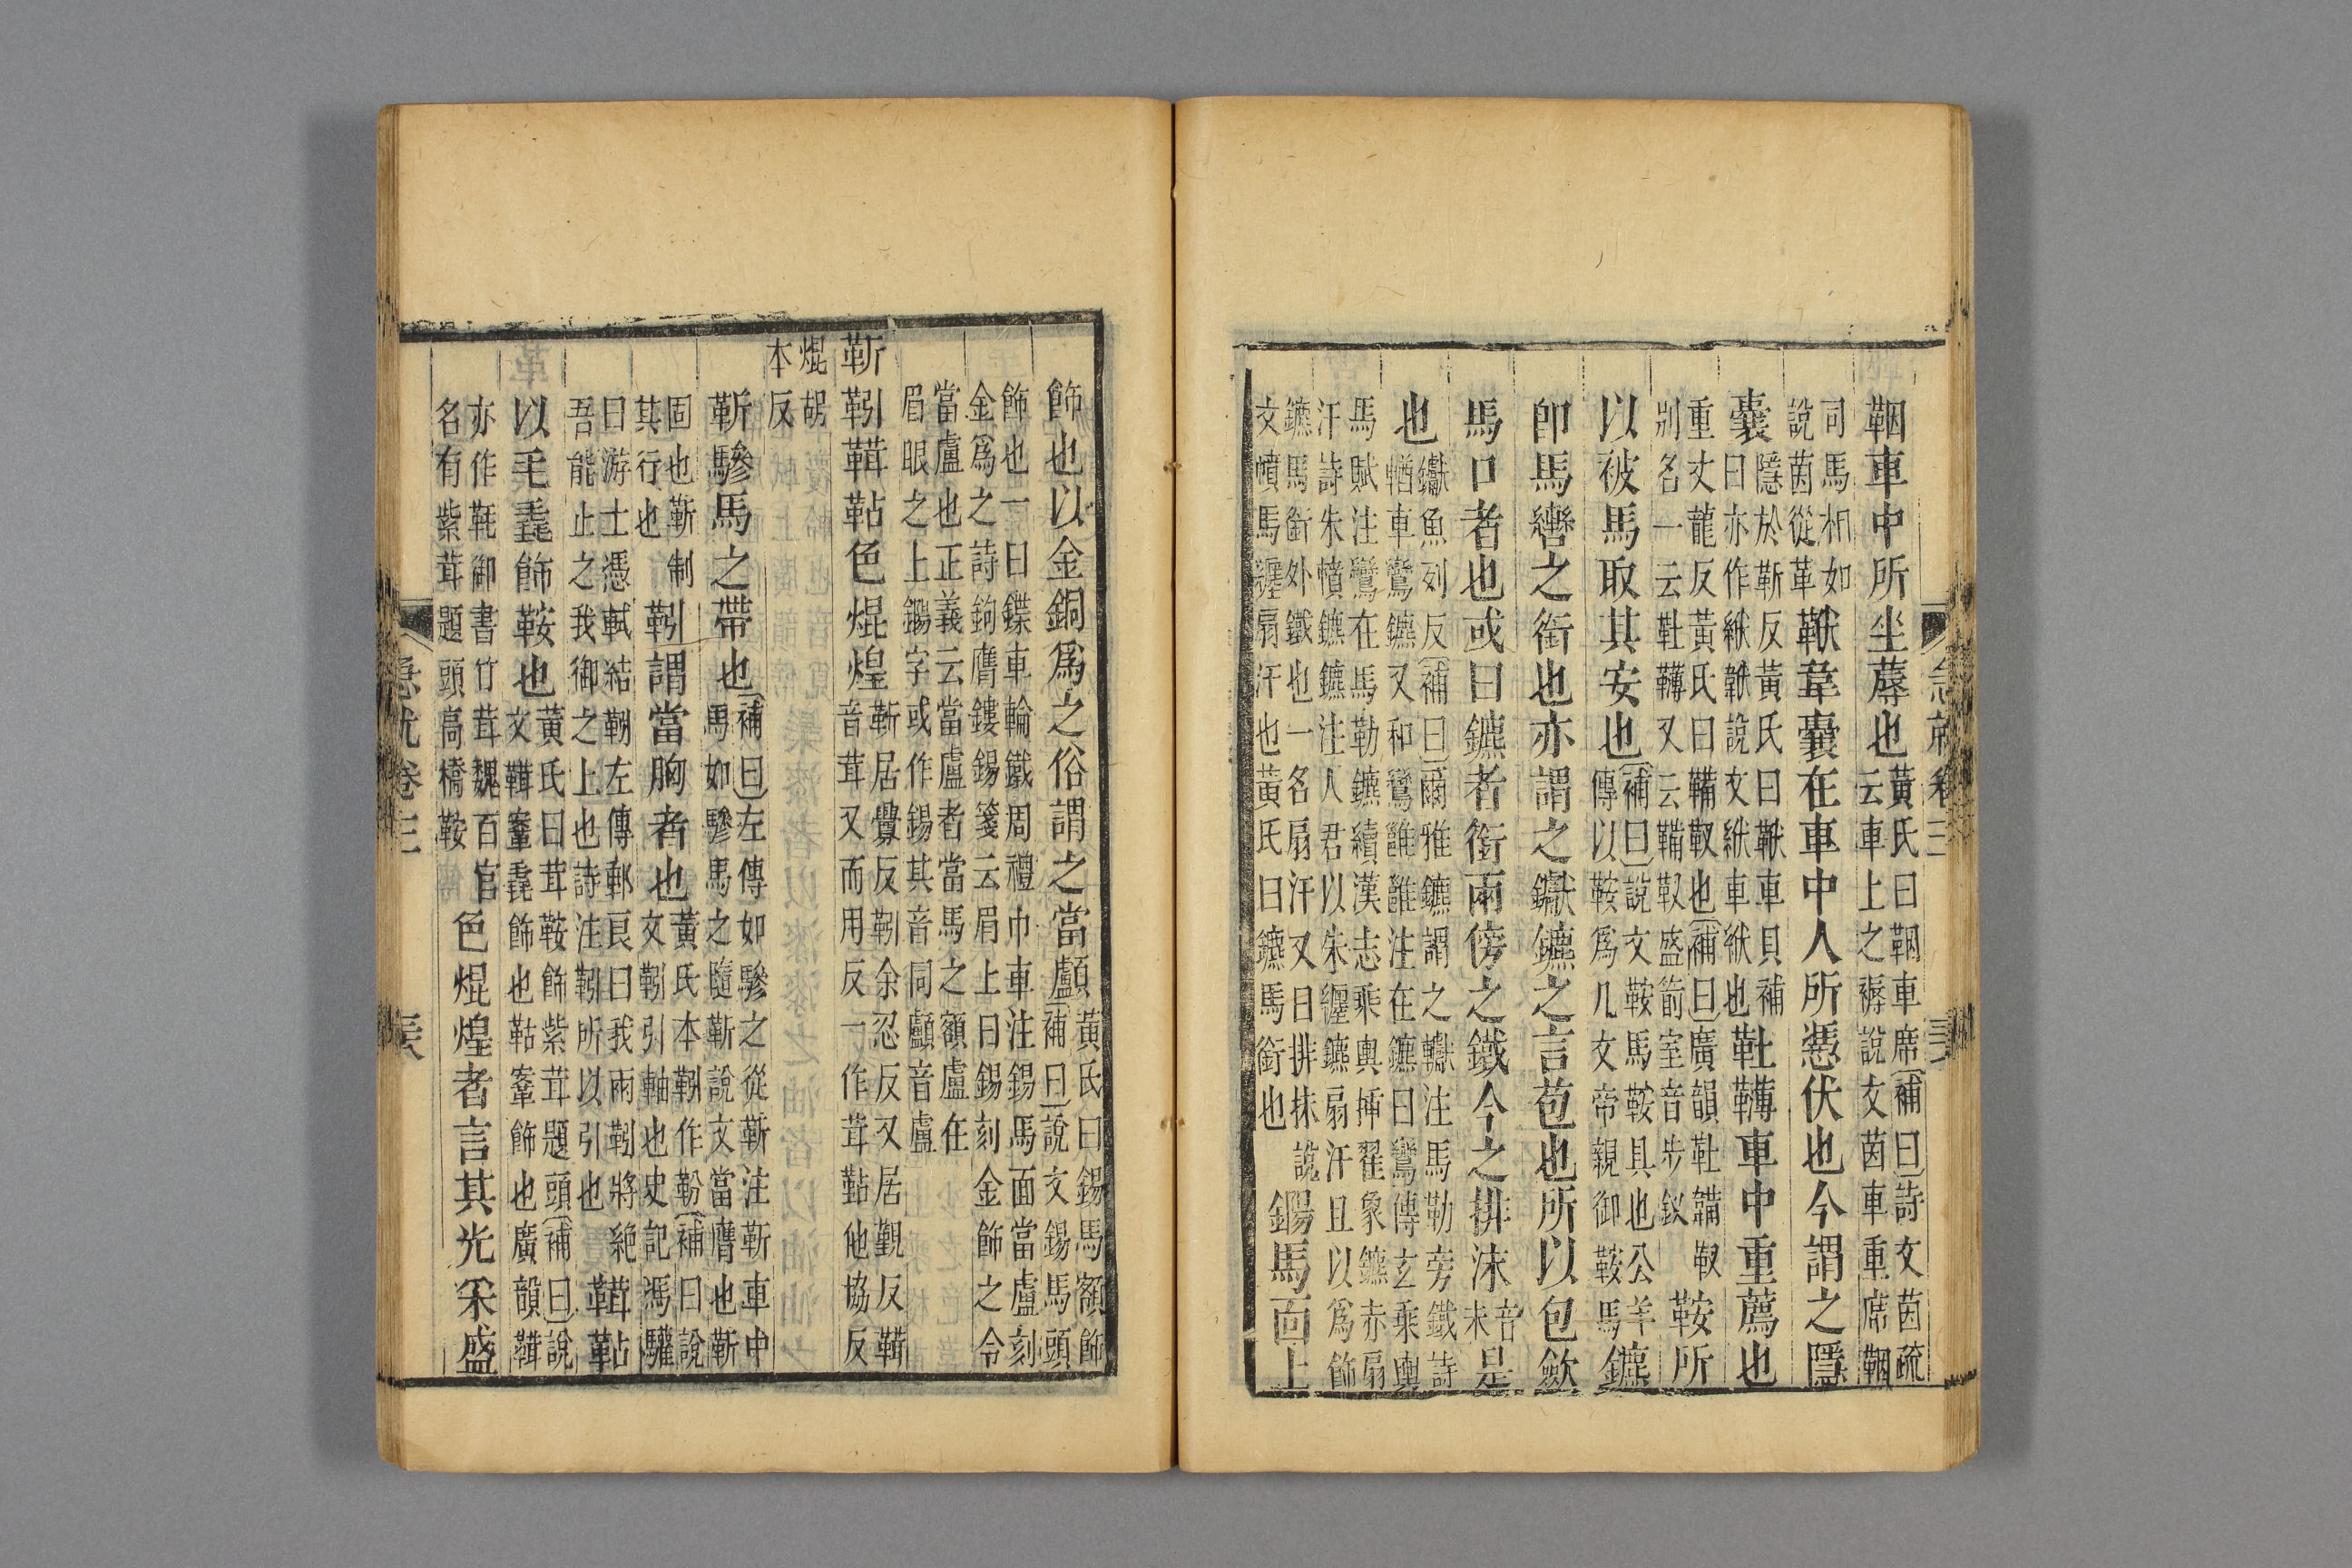 鞇車中所坐蓐也黃氏曰鞇車席補曰詩文茵疏云車上之褥說文茵車重席鞇
司馬相如說茵從革靯韋囊在車中人所憑伏也今謂之隱
囊隱於靳反黃氏曰靯車具補曰亦作紱韍說文紱車紱也靯䪙車中重薦也
重丈龍反黃氏曰鞴靫也補曰廣韻靯鞴靫別名一云靯䪙又云鞴靫盛箭室音步釵鞍所
以被馬取其安也補曰說文鞍馬鞍具也公羊傳以鞍爲几文帝親御鞍馬鑣
卽馬轡之銜也亦謂之钀鑣之言苞也所以包斂
馬口者也或曰鑣者銜兩傍之鐵今之排沫音未是
也钀魚列反補曰爾雅鑣謂之钀注馬勒旁鐵詩輶車鸞鑣又和鸞雝雝注在鑣曰鸞傳玄乘輿
馬賦注鸞在馬勒鑣續漢志乘輿插翟象鑣赤扇汗詩朱幩鑣鑣注人君以朱纏鑣扇汗且以爲飾
鑣馬銜外鐵也一名扇汗又曰排抹說文幩馬纏扇汗也黃氏曰鑣馬銜也鐊馬面上
急就卷三
飾也以金銅爲之俗謂之當顱黃氏曰鍚馬額飾補曰說文鍚馬頭
飾也一曰鍱車輪鐵周禮巾車注鍚馬面當盧刻金爲之詩鉤膺鏤鍚箋云眉上曰鍚刻金飾之今
當盧也正義云當盧者當馬之額盧在眉眼之上鐊字或作鍚其音同顱音盧
靳靷鞊鞊色焜煌靳居舋反靷余忍反又居覲反鞊音茸又而用反一作茸㸃他協反
焜胡本反
靳驂馬之帶也補曰左傳如驂之從靳注靳車中馬如驂馬之隨靳說文當膺也靳
固也靳制其行也靷謂當胸者也黃氏本靷作靹補曰說文靷引軸也史記馮驩
曰游士憑軾結靷左傳郵良曰我兩靷將絶吾能止之我御之上也詩注靷所以引也鞊鞍
以毛毳飾鞍也黃氏曰茸鞍飾紫茸題頭補曰說文鞊鞌毳飾也鞊鞌飾也廣韻鞊
亦作毦御書竹茸魏百官名有紫茸題頭高橋鞍色焜煌者言其光采盛
急就卷三